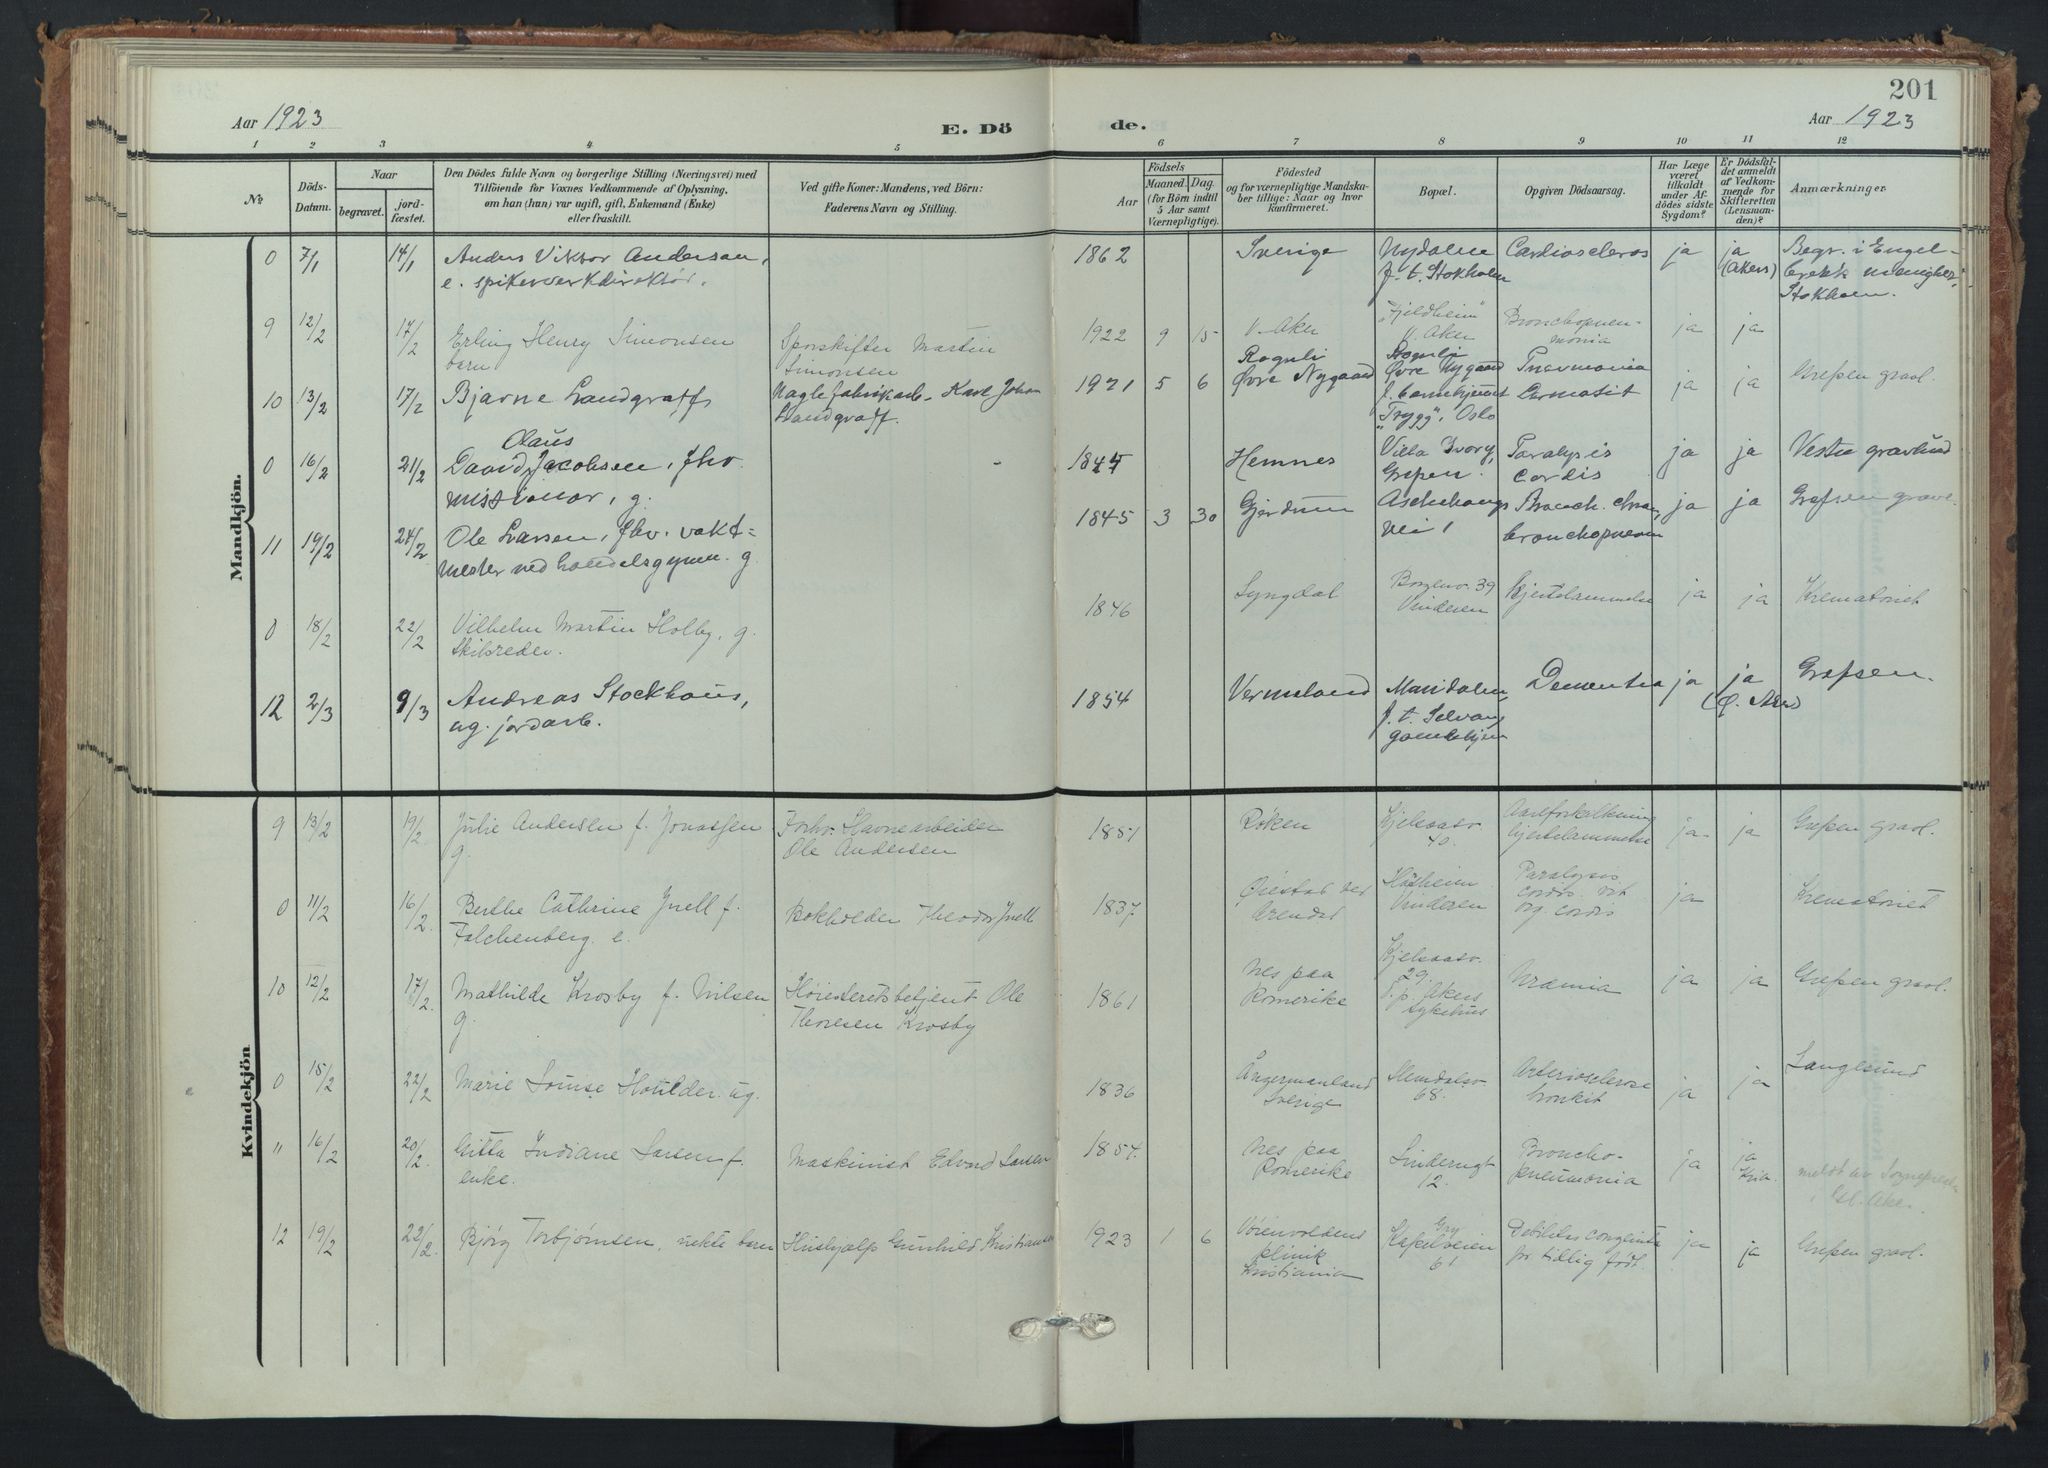 201
Aar 1923
E. Dö
de.
Aar 1923
1 2 3 4 5 6 7 8 9 10 11 12
No
Döds-
Datum.
Naar
begravet.
jord-
fæstet.
Den Dödes fulde Navn og borgerlige Stilling (Næringsvei) med
Tilföiende for Voxnes Vedkommende af Oplysning,
om han (hun) var ugift, gift, Enkemand (Enke)
eller fraskilt.
Ved gifte Koner: Mandens, ved Börn:
Faderens Navn og Stilling.
Födsels
Aar
Maaned. Dag.
(for Börn indtil
5 Aar samt
Værnepligtige).
Födested
og for værnepligtige Mandska-
ber tillige: Naar og hvor
konfirmeret.
Bopæl.
Opgiven Dödsaarsag.
Har Læge
været
tilkaldt
under Af-
dödes sidste
Sygdom?
Er Dödsfal-
det anmeldt
af Vedkom-
mende for
Skifteretten
(Lensman-
den)?
Anmærkninger
Mandkjön.
0 7/1 14/1 Anders Viktor Anderson, 1862 Sverige Nydalen Cardiosceleros ja ja Begr. i Engel-
e. spikerverkdirektör. f. t. Stokholm (Akers) brekk menighet,
Stokholm.
9 12/2 17/2 Erling Henry Simonsen Sporskifter Martin 1922 9 15 V. Aker "Fjeldheim" Bronchopneu- ja ja
barn Simonsen V. Aker monia
10 13/2 17/2 Bjarne Landgraff Naglefabrikarb. Karl Johan 1921 5 6 Øvre Nygaard Øvre Nygaard Pneumonia ja ja Grefsen gravl.
Landgraff. f. barnehjemmet Dermatit
"Trygg", Oslo
Olaus
0 16/2 21/2 David Jacobsen, fhv. Hemnes Villa Ivory, Paralysis ja ja Vestre gravlund
missionær, g. Grefsen. cordis
11 19/2 24/2 Ole Larsen, fhv. vakt- 1845 3 30 Gjerdrum Aschehougs Bronch. chron. ja ja Grefsen gravl.
mester ved handelsgymn. g. vei 1 bronchopneum
0 18/2 22/2 Vilhelm Martin Holby, g. 1846 Lyngdal Borgenv. 39 Hjertelammelse ja ja Krematoriet
Skibsreder. Vinderen
12 2/3 9/3 Andreas Stockhaus, 1854 Vermeland Maridalen Dementia ja ja Grefsen.
ug. jordarb. f. t. Solvang
gamlehjem
Kvindekjön
9 13/2 19/2 Julie Andersen f. Jonassen Forhv. Havnearbeider 1851 Røken Kjelsaasv. Aareforkalkning ja ja Grefsen gravl.
g. Ole Andersen 40. hjertelammelse
0 11/2 16/2. Berthe Cathrine Juell f. Bokholder Theodor Juell 1837. Øiestad ved Vinderen Paralysis ja Krematoriet
Falchenberg. e. Arendal cordis. vit.
org. cordis
10 12/2 17/2. Mathilde Krosby f. Nilsen Høiesteretsbetjent Ole 1861 Nes paa Kjelsaasv. Uræmia ja ja Grefsen gravl.
g. Thoresen Krosby Romerike 29.
f. p. Akers
sykehus
0 15/2 22/2 Marie Louise Houlder. ug. 1836 Ångermanland Stendalsv. Arteriosclerose ja ja Langesund
Sverige 68. bronkit
" 16/2 20/2. Gitta Indiane Larsen f. Maskinist Edvard Larsen 1857. Nes paa Broncho- ja ja meldt av Sogneprest
enke. Romerike 12. pneumonia Kria. i Gl. Aker.
12 19/2 22/2. Bjørg Torbjørnsen, uekte barn Hushjælp Gunhild Kristiansen 1923 1 6 Vøienvoldens Kapelveien Debilitas congenita ja ja Grefsen gravl.
klinik 61 for tidlig født.
Kristiania